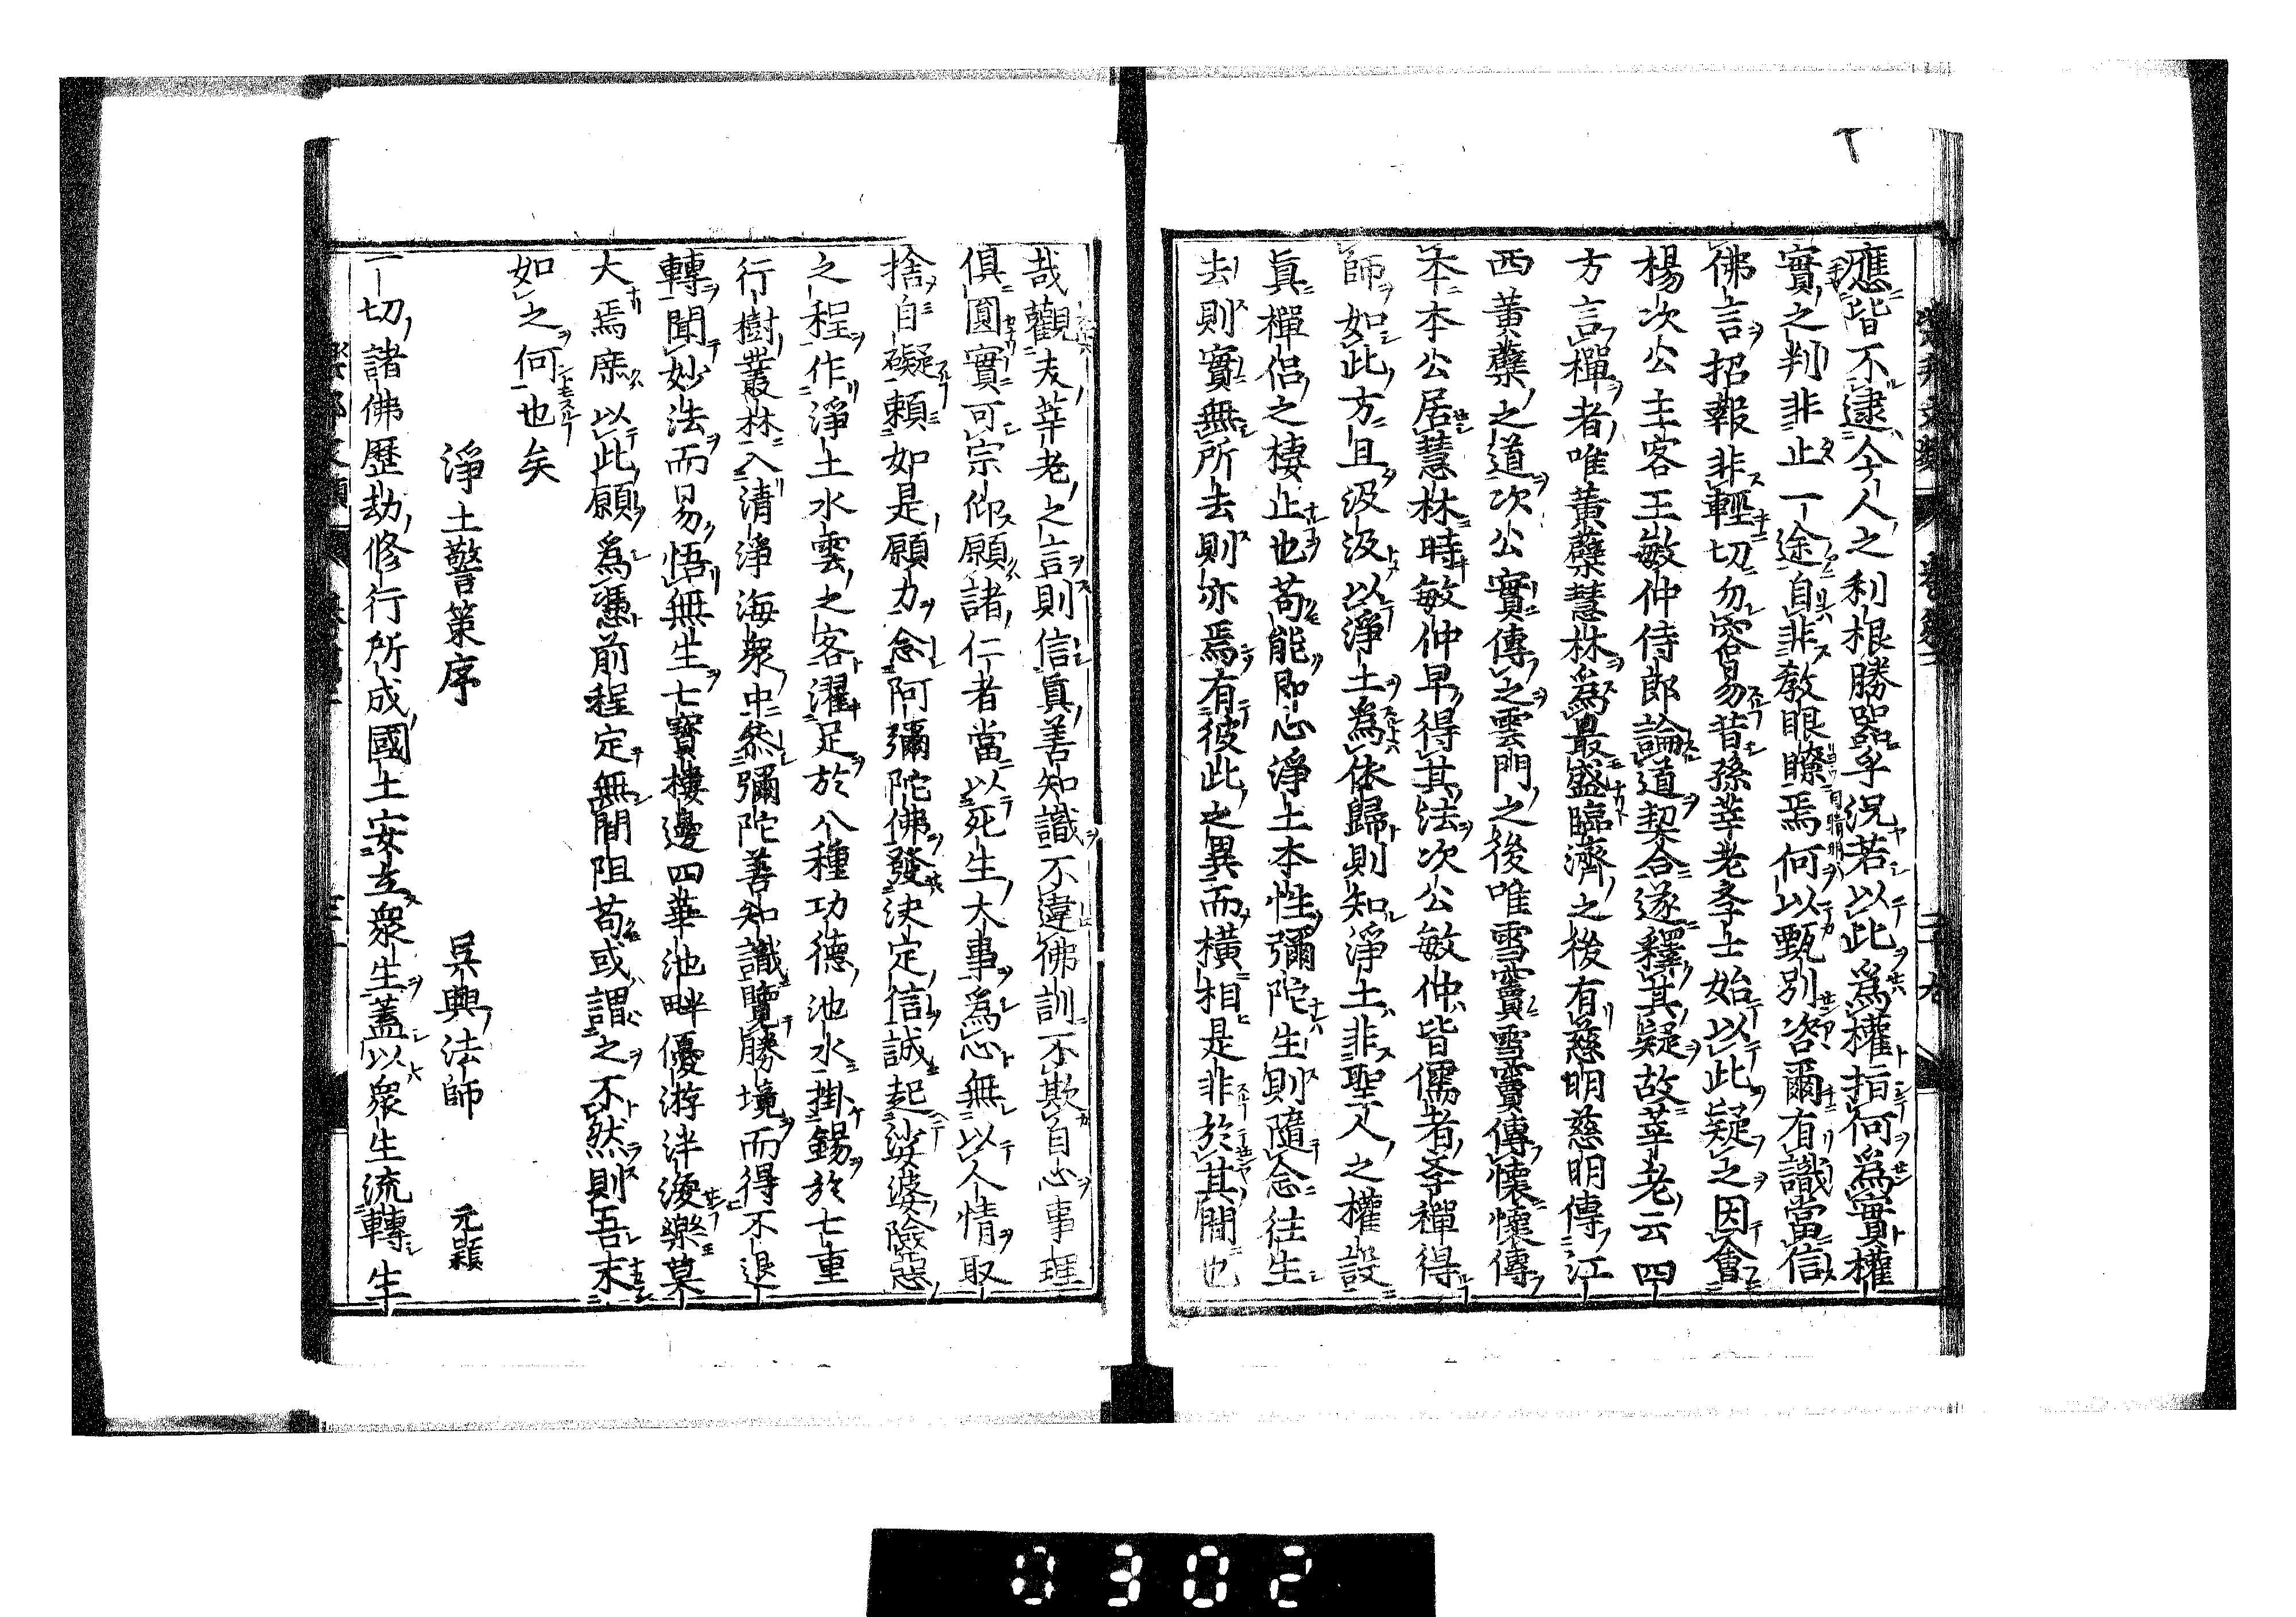 應皆不逮今人之利根勝器乎況若以此爲權指何爲實權
實之判非止一途自非教眼瞭焉何以甄別咨爾有識當信
佛言招報非輕切勿容易昔孫莘老李士始以此疑之因會
楊次公主客王敏仲侍郎論道契合遂釋其疑故莘老云四
方言禪者唯黃蘗慧林爲最盛臨濟之後有慈明慈明傳江
西黃蘗之道次公實傳之雲門之後唯雪竇雪竇傳懷懷傳
本本公居慧林時敏仲早得其法次公敏仲皆儒者李禪得
師如此方且汲汲以淨土爲依歸則知淨土非聖人之權設
眞禪侶之棲止也苟能即心淨土本性彌陀生則隨念往生
去則實無所去則亦焉有彼此之異而橫相是非於其間也
哉觀夫莘老之言則信眞善知識不違佛訓不欺自心事理
俱圓實可宗仰願諸仁者當以死生大事爲心無以人情取
捨自礙賴如是願力念阿彌陀佛發決定信誠起娑婆險惡
之程作淨土水雲之客濯足於八種功德池水掛錫於七重
行樹叢林入清淨海眾中叅彌陀善知識覽勝境而得不退
轉聞妙法而易悟無生七寶樓邊四華池畔優游泮渙樂莫
大焉庶以此願爲憑前程定無間阻苟或謂之不然則吾末
如之何也矣
淨土警策序
吳興法師　元頴
一切諸佛歷劫修行所成國土安立眾生蓋以眾生流轉生
0302